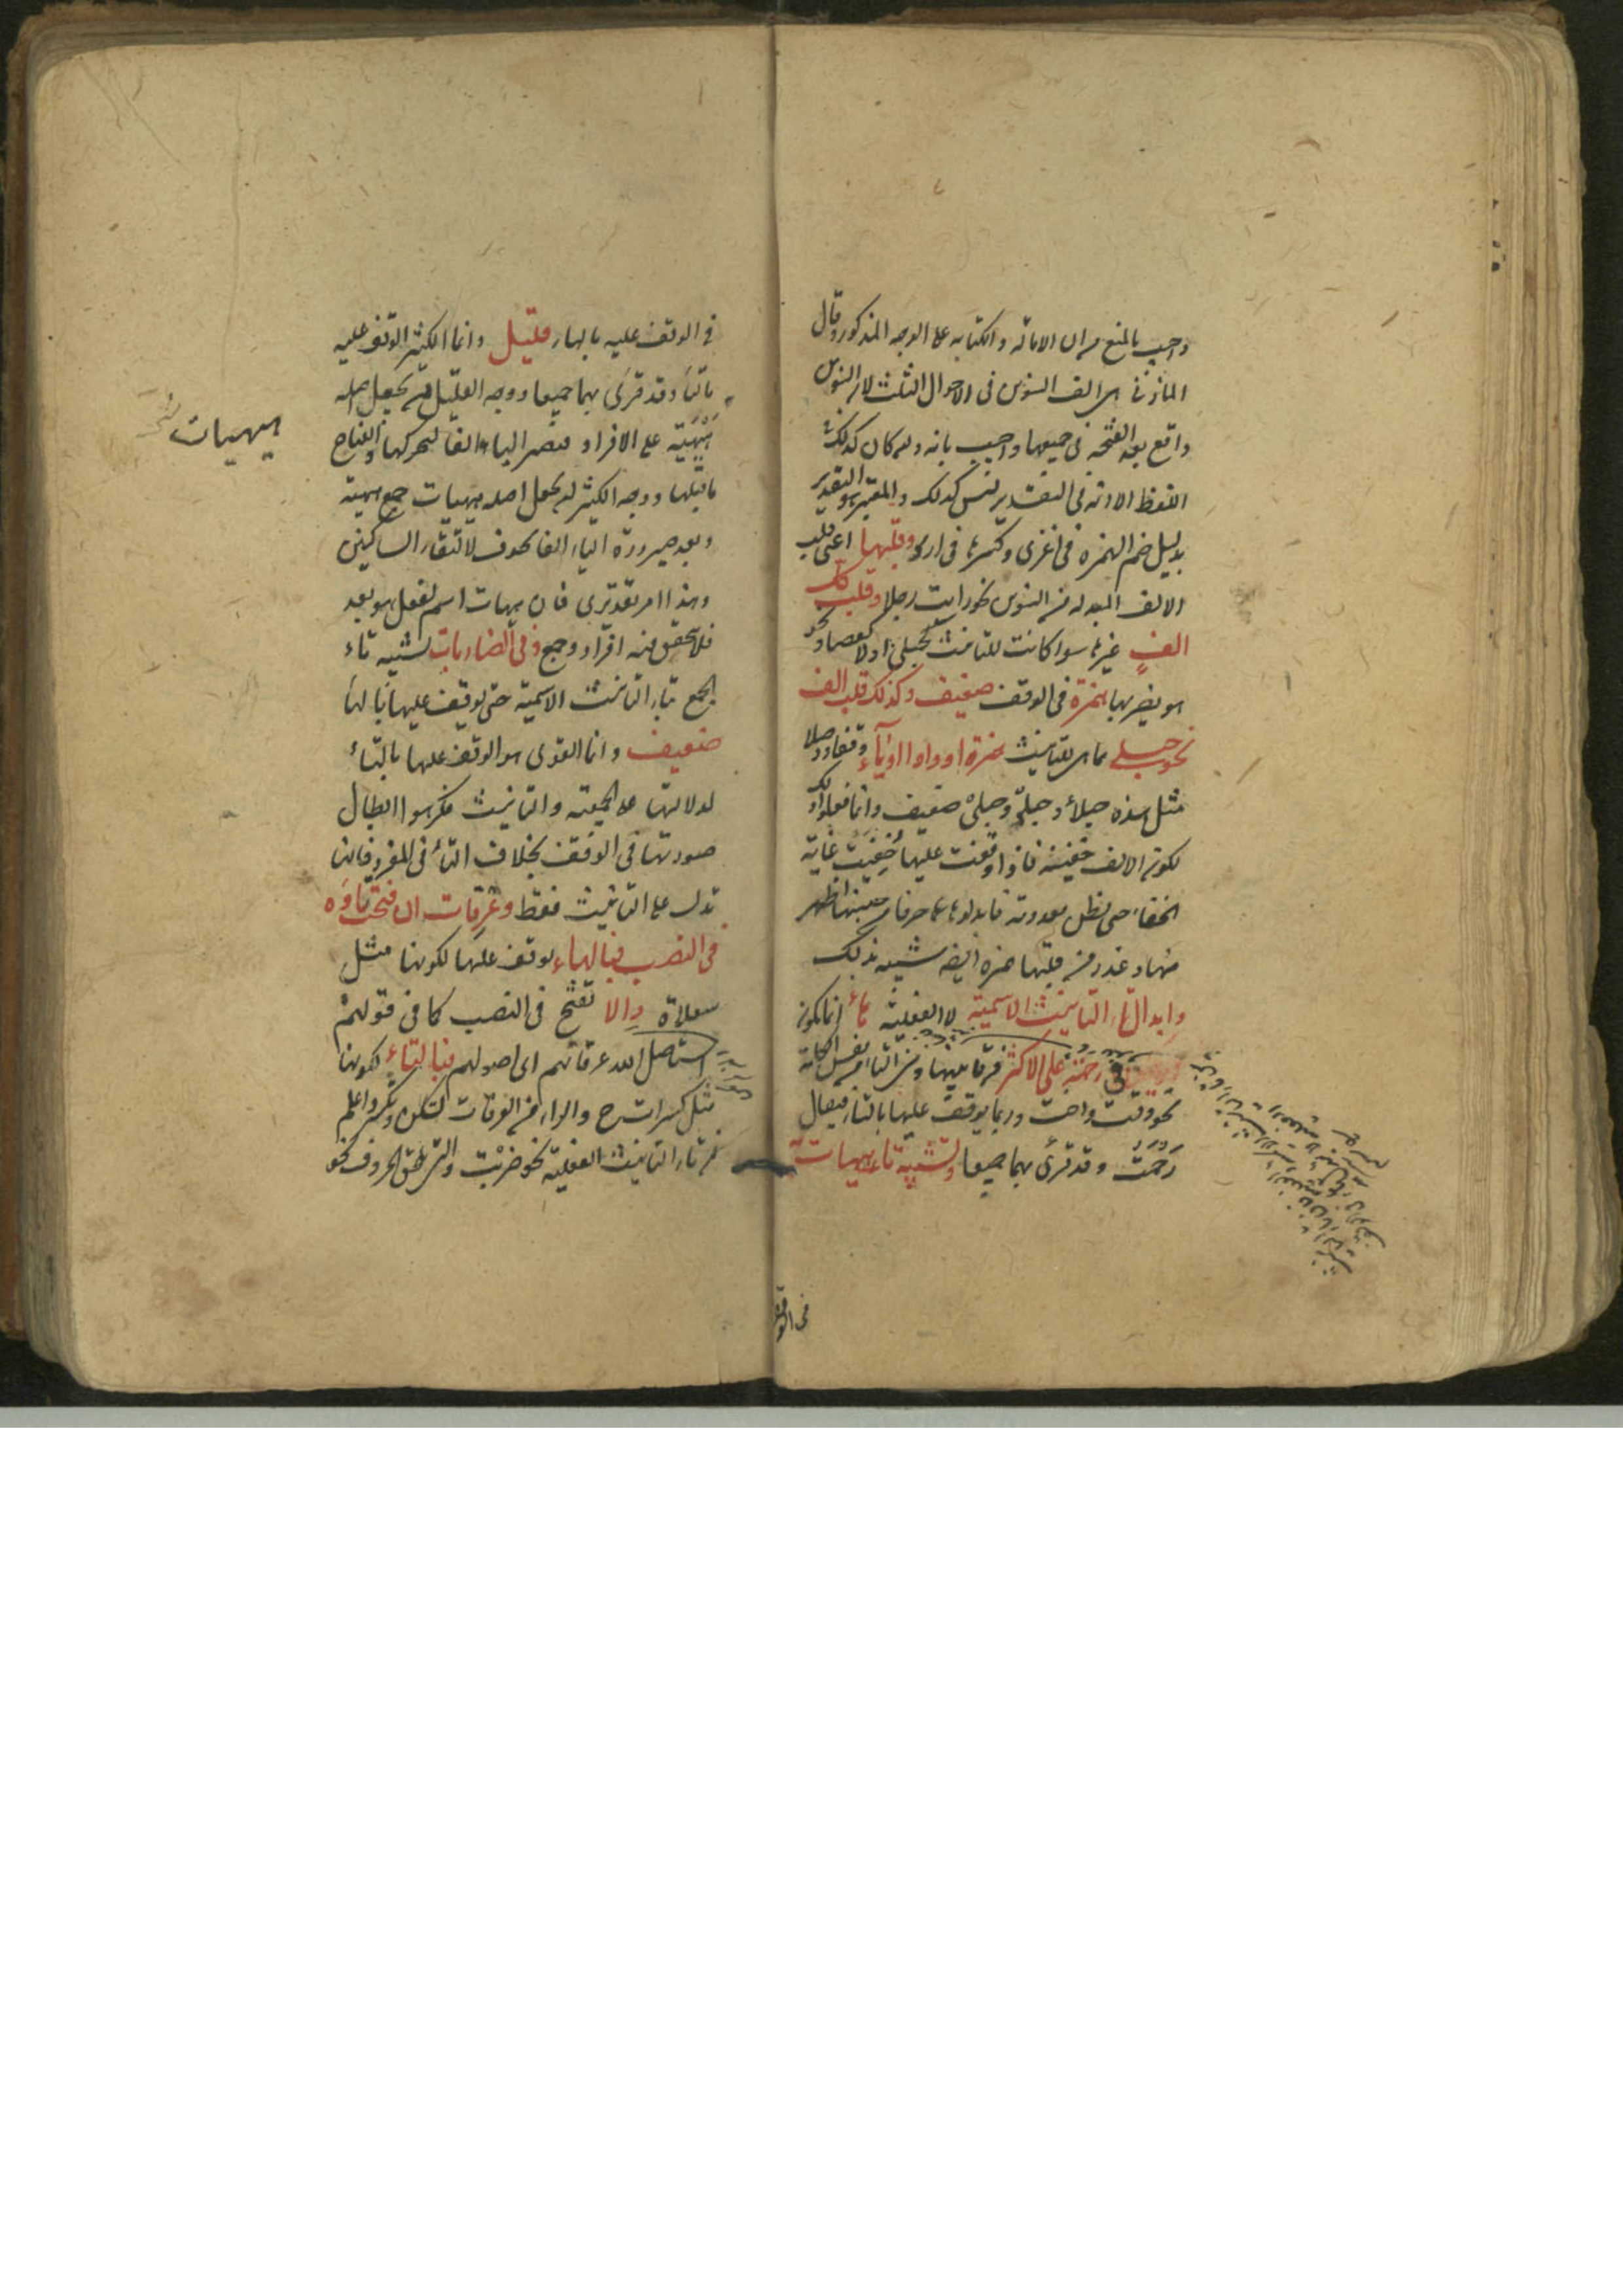 واجيب بالمنع من ان الامالة والكتابة على الوجه المذكور وقال
المازني هي الف التنوين في الاحوال الثلث لان التنوين
واقع بعد الفتحة في جميعها واجيب بانه وان كان كذلك
اللفظ الا انه في التقدير ليس كذلك والمعتبر هو التقدير
بدليل ضم الهمزة في اغزى وكسرها في ارمى وقلبها اعنى قلب
الالف المبدلة من التنوين نحو رايت رجلا وقلب كل
الف غيرها سواء كانت للتانيث كحبلى او لا كعصا ونحو
هو يضربها همزة في الوقف ضعيف وكذلك قلب الف
نحو حبلى مما هي للتانيث همزة او واوا او ياء وقفا ووصلا
مثل هذه حبلأ وحبلو وحبلى ضعيف وانما فعلوا ذلك
لكون الالف خفية فاذا وقفت عليها خفيت غاية
الخفاء حتى تظن معدومة فابدلوها حرفا من جنسها اظهر
منها وعذر من قلبها همزة ايضا شبيه بذلك
وابدال تاء التانيث الاسمية لا الفعلية هاء انما يكون
في رحمة على الاكثر فرقا بينها وبين التاء من نفس الكلمة
نحو وقت واخت وربما يوقف عليها بالتاء فيقال
رحمت وقد قرئ بهما جميعا وتشبيه تاء هيهات به
في الوقف
في الوقف عليه بالهاء قليل وانما الكثير الوقف عليه
بالتاء وقد قرئ بهما جميعا ووجه القليل ان يجعل اصله
هيهية على الافراد فتصير الياء الفا لتحركها وانفتاح
ما قبلها ووجه الكثير ان يجعل اصله هيهيات جمع هيهية
وبعد صيرورة الياء الفا يحذف لالتقاء الساكنين
وهذا امر تقديرى فان هيهات اسم لفعل هو بعد
فلا يتحقق فيه افراد وجمع وفي الضاربات لشبه تاء
الجمع بتاء التانيث الاسمية حتى يوقف عليها بالهاء
ضعيف وانما القوى هو الوقف عليها بالتاء
لدلالتها على الجمعية والتانيث فكرهوا ابطال
صورتها في الوقف بخلاف التاء في المفرد فانها
تدل على التانيث فقط وعرقات ان فتحت تاؤه
في النصب فبالهاء يوقف عليها لكونها مثل
سعلاة والا تفتح في النصب كما في قولهم
استاصل الله عرقاتهم اى اصولهم فبالتاء لكونها
مثل كسرات جمع والراء من العرقات تسكن وتكسر واعلم
ان تاء التانيث الفعلية نحو ضربت والتي تلحق الحروف نحو
هيهيات